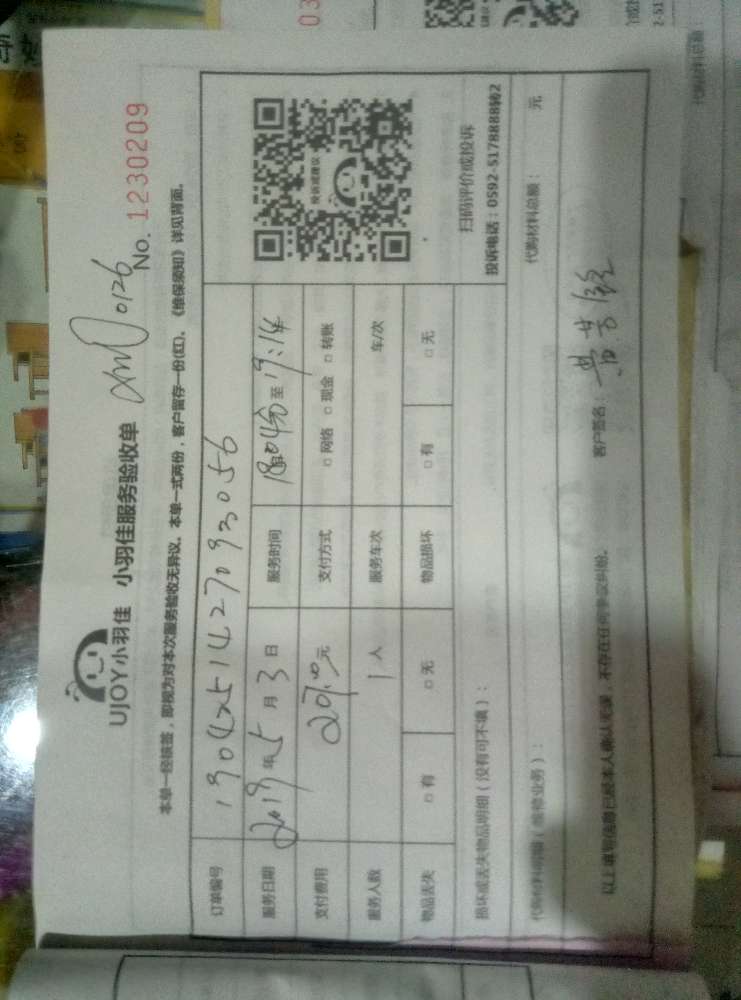 UJOY小羽佳 小羽佳服务验收单
0126
No. 1230209
本单一经核签，即视为对本次服务验收无异议。本单一式两份，客户留存一份(红)。《维保须知》详见背面。
订单编号
服务日期 2019年5月3日 服务时间 18时04分至19:14
支付费用 元 支付方式 □网络 □现金 □转账
服务人数 1人 服务车次 车/次
物品丢失 □有 □无 物品损坏 □有 □无
投诉或建议
扫码评价或投诉
投诉电话：0592-5178888转2
损坏或丢失物品明细（没有可不填）：
代购材料明细（维修业务）： 代购材料总额： 元
以上填写信息已经本人确认无误，不存在任何争议纠纷。 客户签名：黄
03
代购材料总额：